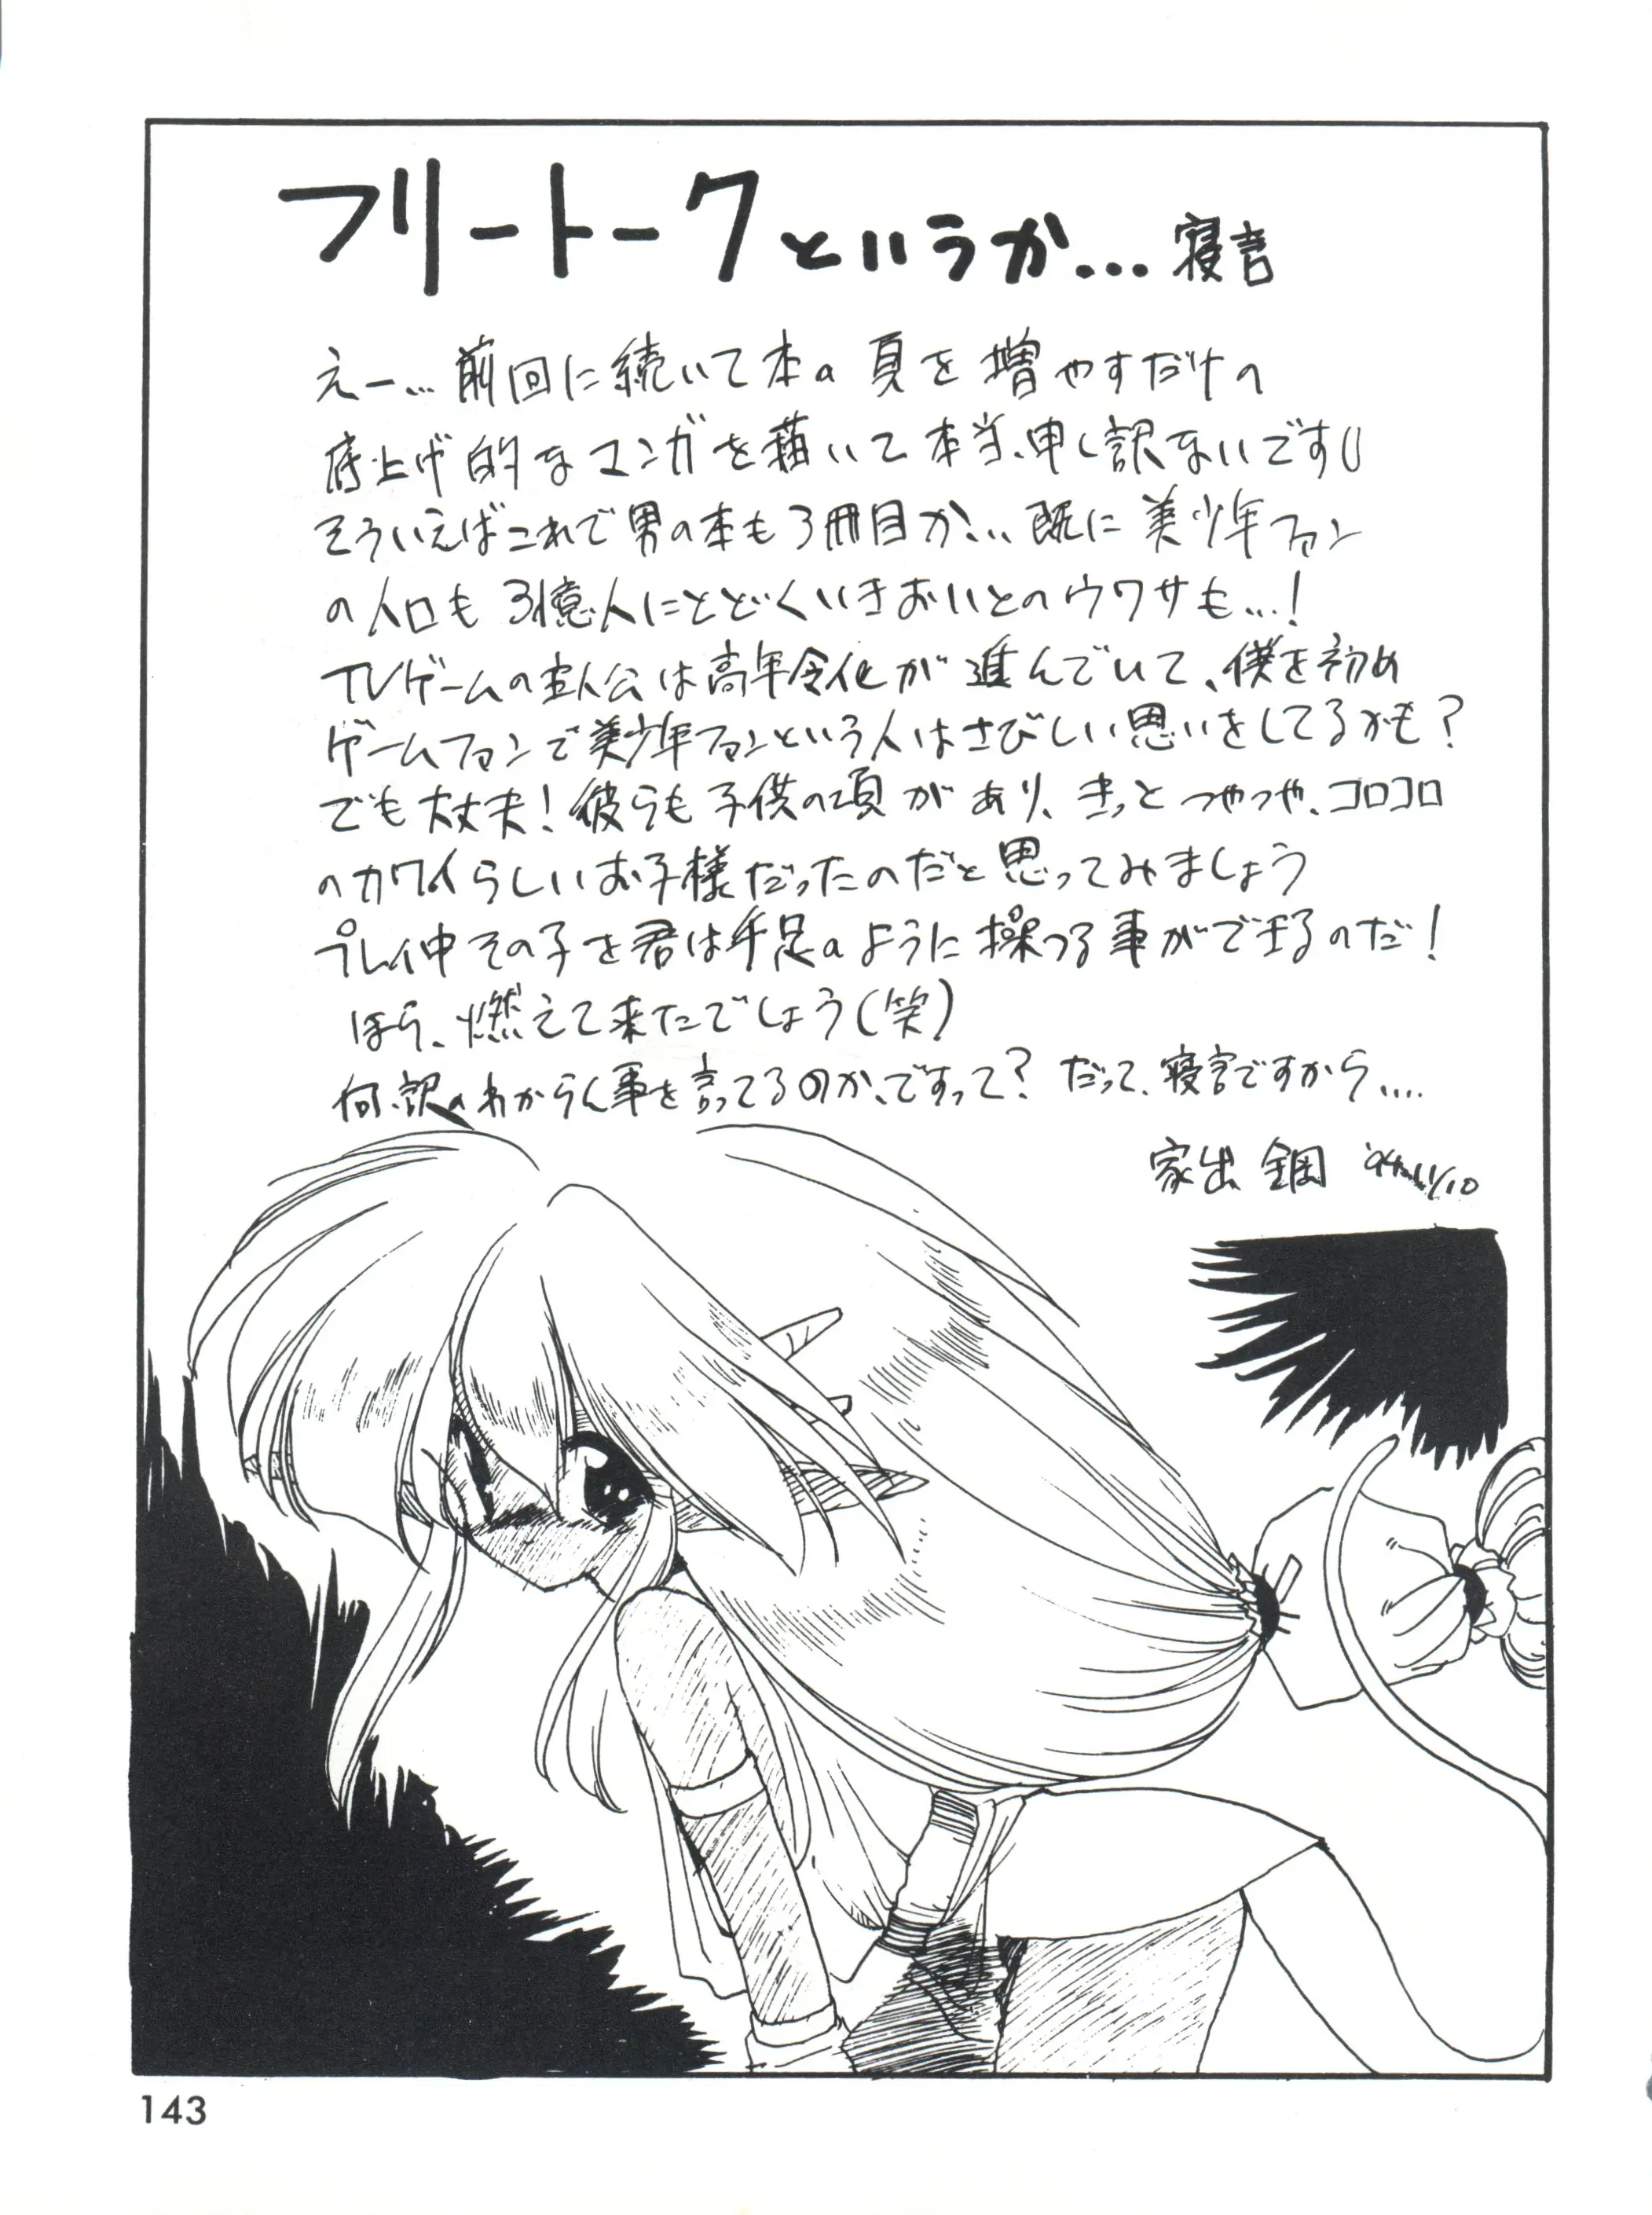 フリートークというか…寝言
えー…前回に続いて本の頁を増やすだけの
底上げ的なマンガを描いて本当、申し訳ないです
そういえばこれで男の本も3冊目か…既に美少年ファン
の人口も3億人にとどくいきおいとのウワサも…!
TVゲームの主人公は高年令化が進んでいて、僕を初め
ゲームファンで美少年ファンという人はさびしい思いをしてるかも?
でも大丈夫!彼らも子供の頃があり、きっとつやつや、コロコロ
のカワイらしいお子様だったのだと思ってみましょう
プレイ中その子を君は手足のように操つる事ができるのだ!
ほら、燃えて来たでしょう(笑)
何、訳のわからん事を言ってるのか、ですって?だって、寝言ですから....
家出 鋼 '94.11/10
143